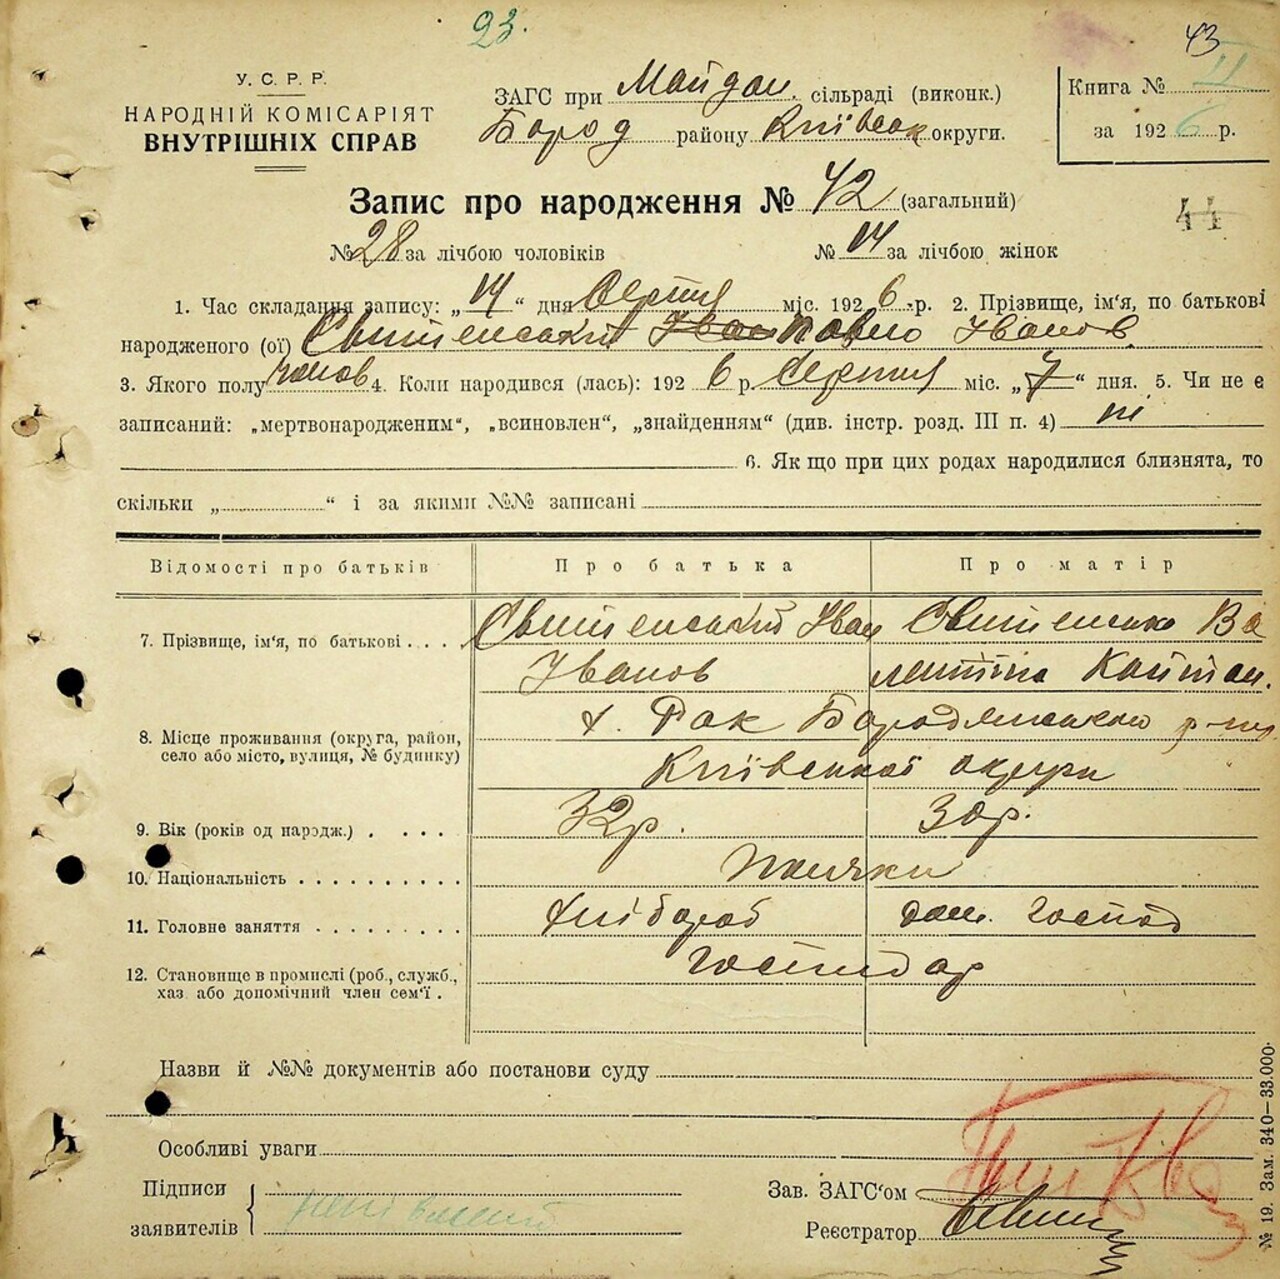 23.
43
У. С. Р. Р.
НАРОДНІЙ КОМІСАРІЯТ
ВНУТРІШНІХ СПРАВ
ЗАГС при Майдан. сільраді (виконк.)
Бород району Київськ округи.
Книга № II
за 1926 р.
Запис про народження № 42 (загальний)
44
№ 28 за лічбою чоловіків № 14 за лічбою жінок
1. Час складання запису: „14“ дня Серпня міс. 1926 р. 2. Прізвище, ім'я, по батькові
народженого (ої) Свитенський Іван Павло Іванов.
3. Якого полу чолов 4. Коли народився (лась): 1926 р. Серпня міс. „7“ дня. 5. Чи не є
записаний: „мертвонародженим“, „всиновлен“, „знайденням“ (див. інстр. розд. III п. 4) ні
6. Як що при цих родах народилися близнята, то
скільки „ “ і за якими №№ записані
Відомості про батьків Про батька Про матір
7. Прізвище, ім'я, по батькові . . . . Свитенський Іван Свитенська Ва
Іванов лентина Кайтан.
8. Місце проживання (округа, район, село або місто, вулиця, № будинку) х. Рак Бородянського р-ну
Київської округи
9. Вік (років од нарэдж.) . . . . 32р. 30р.
10. Національність . . . . . . . . . . Поляки
11. Головне заняття . . . . . . . . . хлібороб дом. господ
12. Становище в промислі (роб., служб., хаз. або допомічний член сем'ї . господар
Назви й №№ документів або постанови суду
Особливі уваги
Підписи
заявителів
Зав. ЗАГС'ом
Реєстратор
№ 19. Зам. 340—33.000.